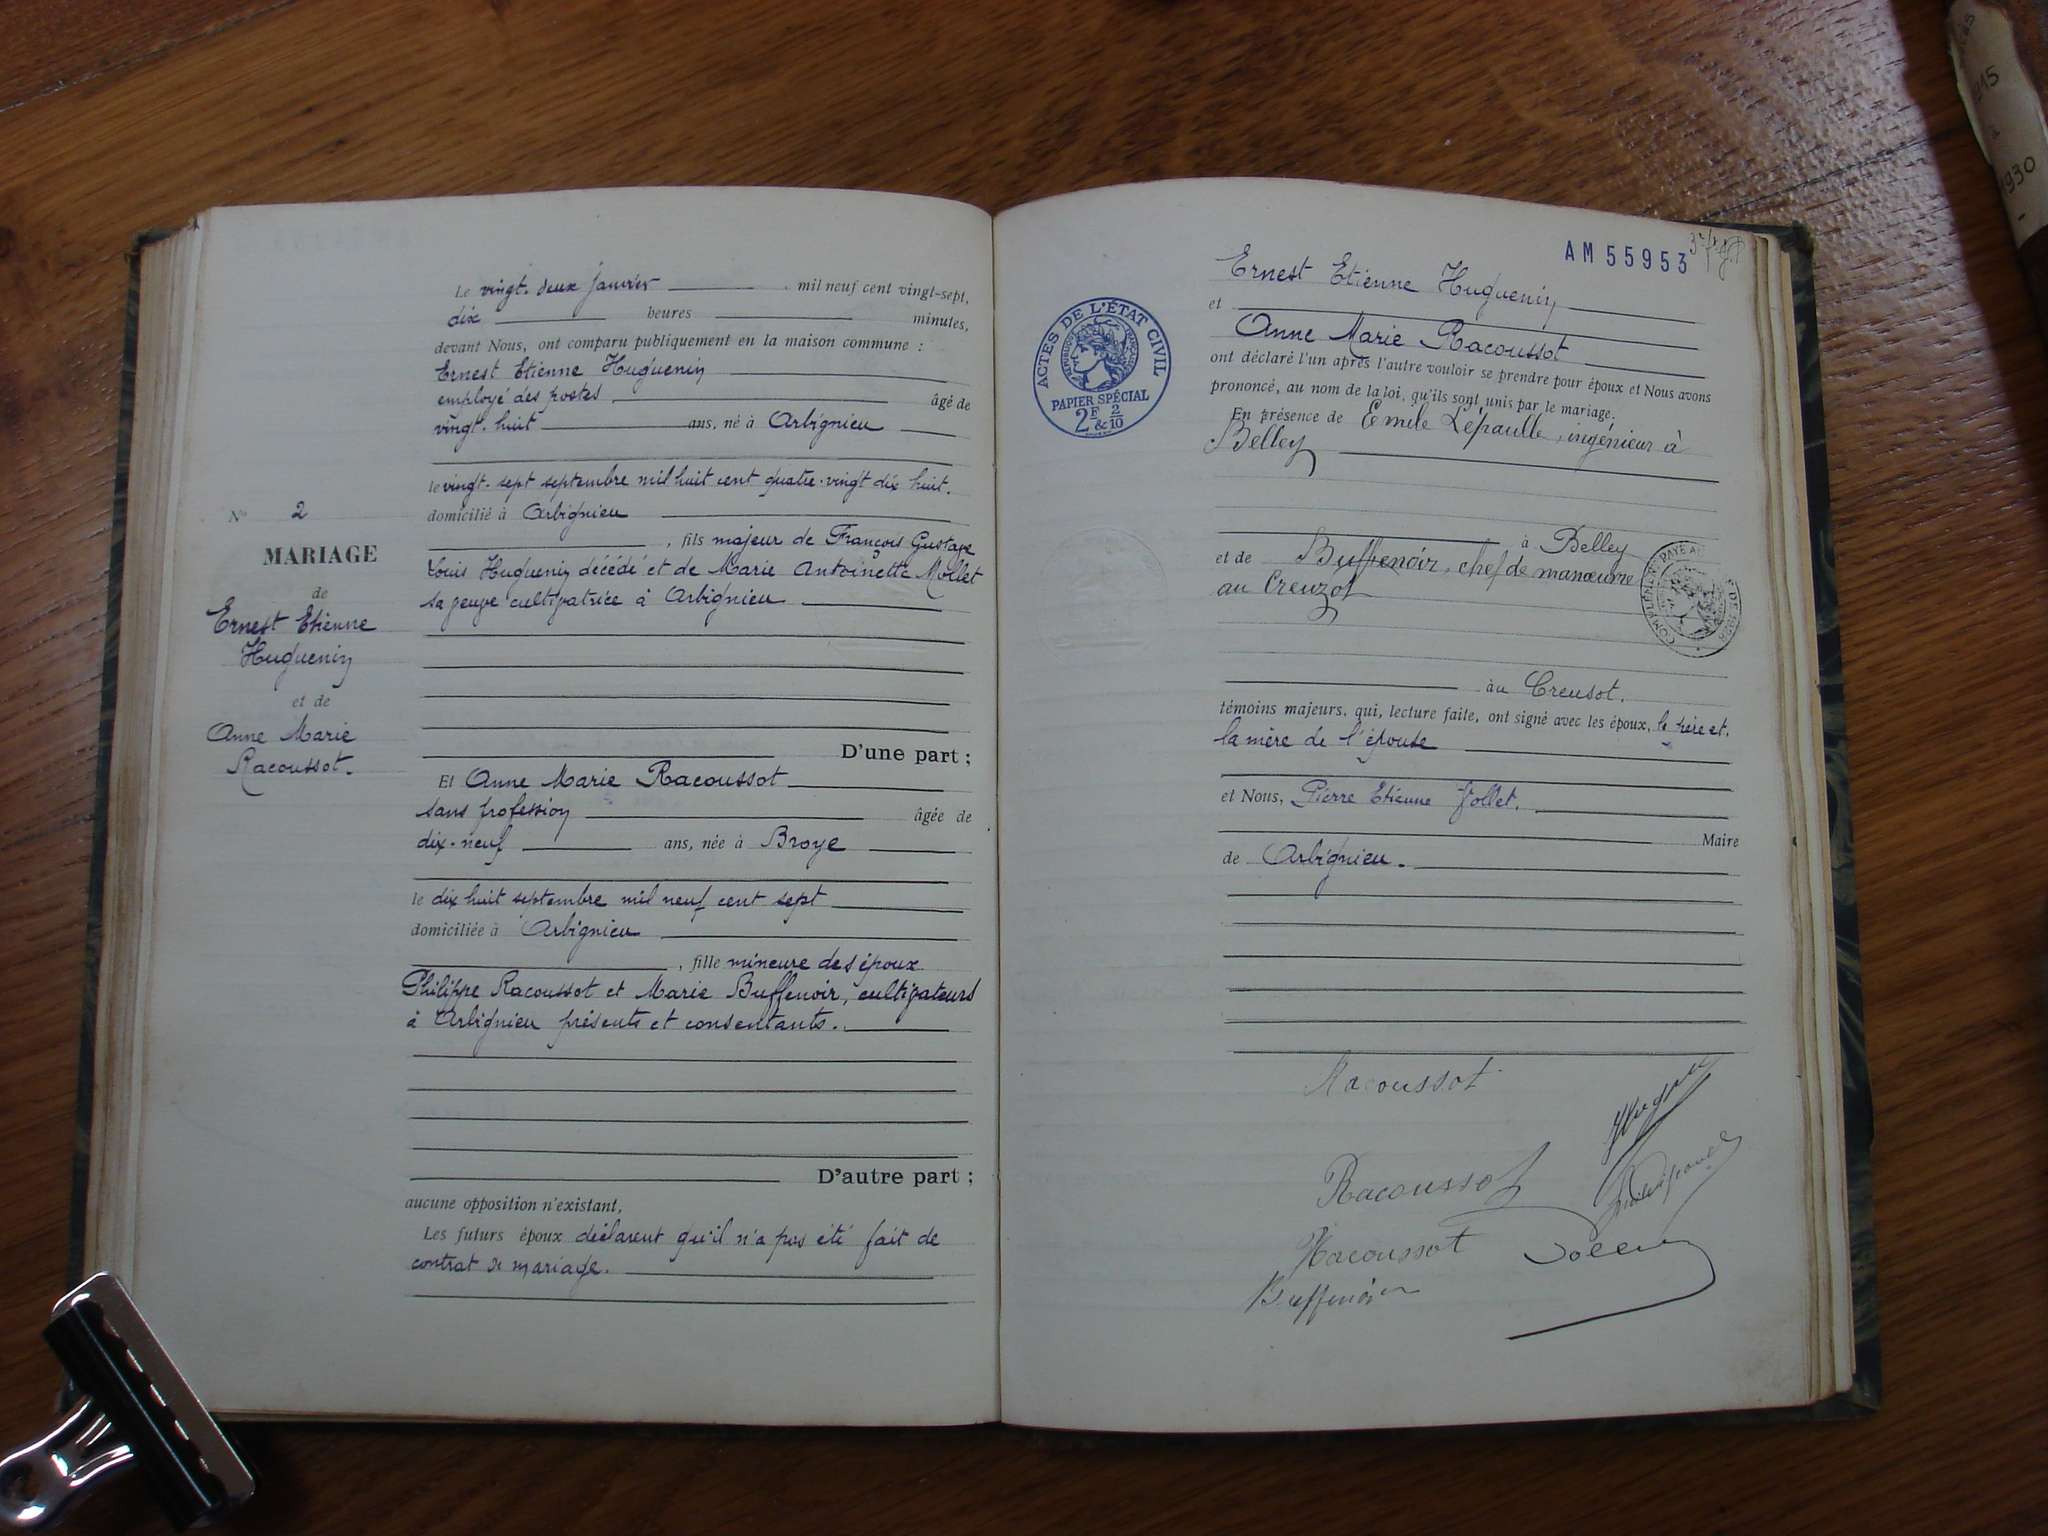 Le vingt-deux janvier mil neuf cent vingt-sept,
dix heures minutes,
devant Nous, ont comparu publiquement en la maison commune :
Ernest Etienne Huguenin
employé des postes âgé de
vingt-huit ans, né à Arbignieu
le vingt-sept septembre mil huit cent quatre-vingt dix huit.
domicilié à Arbignieu
, fils majeur de François Gustave
Louis Huguenin décédé et de Marie Antoinette Mollet
sa veuve cultivatrice à Arbignieu
D'une part ;
Et Anne Marie Racoussot
sans profession âgée de
dix-neuf ans, née à Broye
le dix huit septembre mil neuf cent sept
domiciliée à Arbignieu
, fille mineure des époux
Philippe Racoussot et Marie Buffenoir, cultivateurs
à Arbignieu présents et consentants.
D'autre part ;
aucune opposition n'existant,
Les futurs époux déclarent qu'il n'a pas été fait de
contrat de mariage.
N° 2
MARIAGE
de
Ernest Etienne
Huguenin
et de
Anne Marie
Racoussot.
AM 55953
ACTES DE L'ÉTAT CIVIL
PAPIER SPÉCIAL
2F & 2/10
Ernest Etienne Huguenin
et
Anne Marie Racoussot
ont déclaré l'un après l'autre vouloir se prendre pour époux et Nous avons
prononcé, au nom de la loi, qu'ils sont unis par le mariage.
En présence de Emile Lépaulle, ingénieur à
Belley
à Belley
et de Buffenoir, chef de manœuvre
au Creuzot
au Creusot.
témoins majeurs, qui, lecture faite, ont signé avec les époux, le père et
la mère de l'épouse
et Nous, Pierre Etienne Jollet.
Maire
de Arbignieu.
Racoussot
Racoussot
Racoussot
Buffenoir
1915
1930